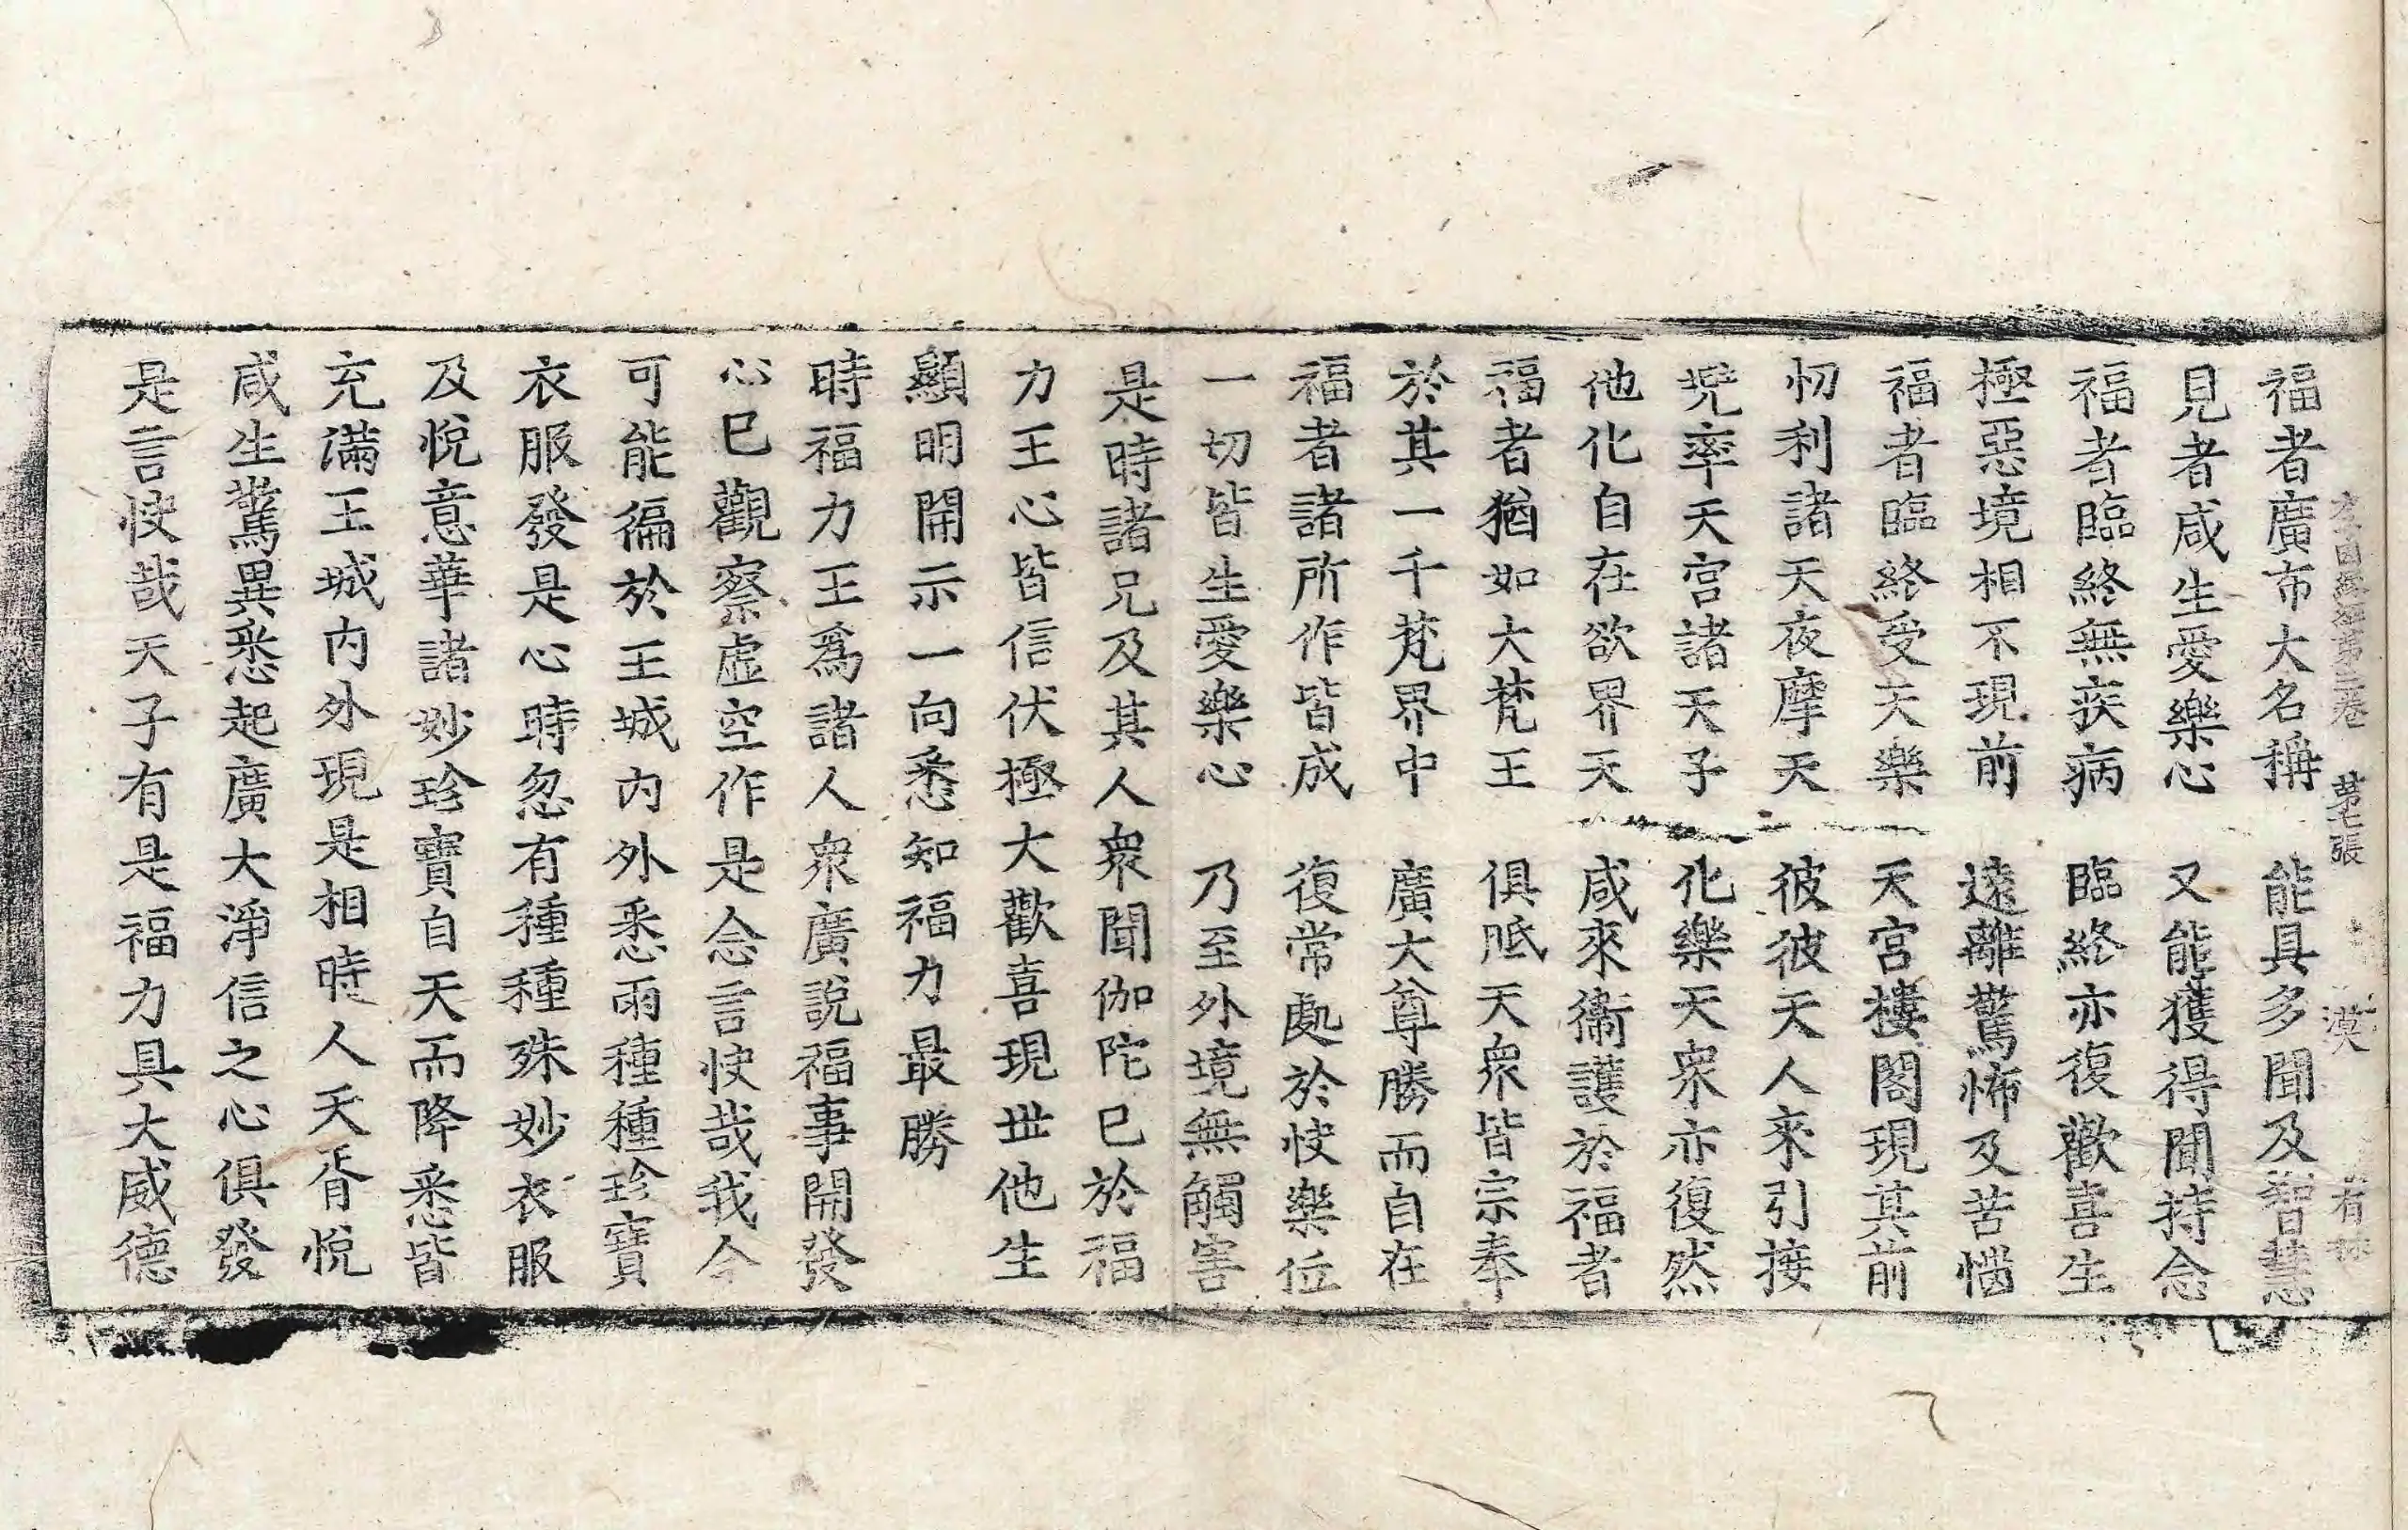 福者廣布大名稱 能具多聞及智慧
見者咸生愛樂心 又能獲得聞持念
福者臨終無疾病 臨終亦復歡喜生
極惡境相不現前 遠離驚怖及苦惱
福者臨終受天樂 天宮樓閣現其前
忉利諸天夜摩天 彼彼天人來引接
兜率天宮諸天子 化樂天衆亦復然
他化自在欲界天 咸來衞護於福者
福者猶如大梵王 俱胝天衆皆宗奉
於其一千梵界中 廣大尊勝而自在
福者諸所作皆成 復常處於快樂位
一切皆生愛樂心 乃至外境無觸害
是時諸兄及其人衆聞伽陀已於福
力王心皆信伏極大歡喜現世他生
顯明開示一向悉知福力最勝
時福力王爲諸人衆廣說福事開發
心已觀察虛空作是念言快哉我今
可能徧於王城內外悉雨種種珍寶
衣服發是心時忽有種種殊妙衣服
及悅意華諸妙珍寶自天而降悉皆
充滿王城內外現是相時人天胥悅
咸生驚異悉起廣大淨信之心俱發
是言快哉天子有是福力具大威德
第七張 漠